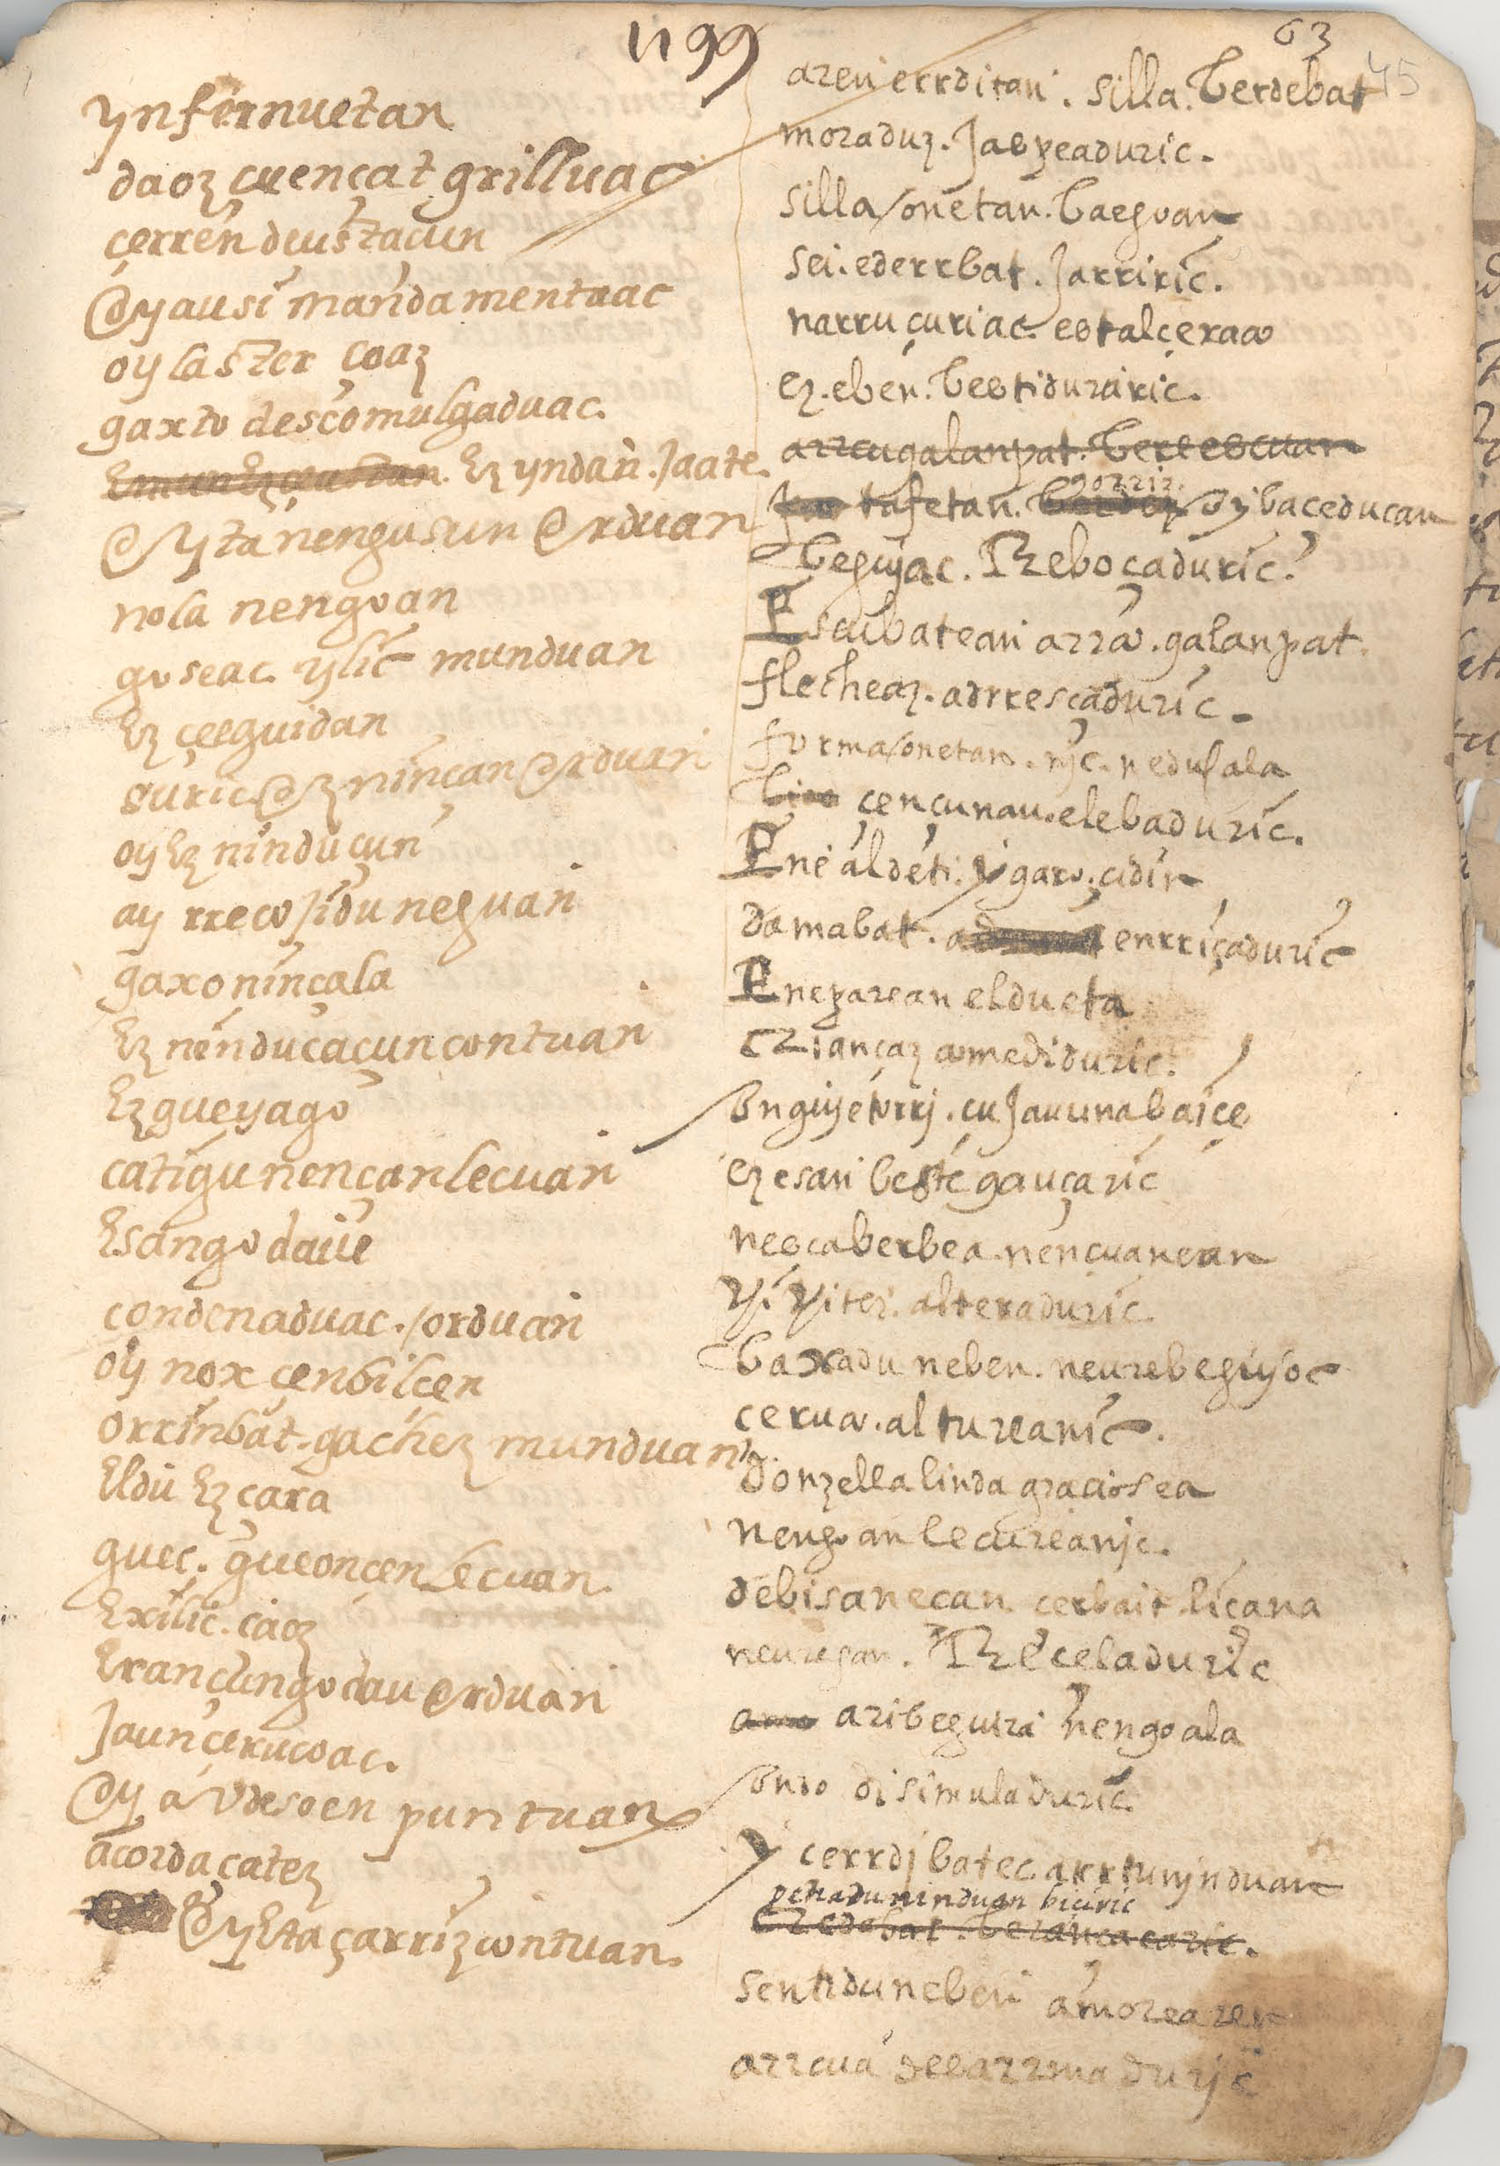 1199
63
45
ynfernuetan
daoz cuençat grilluac
çerren deustaçun
oy ausi mandamentuac
oy laster çoaz
gaxto descomulgaduac.
Ez yndan. Jaate
oyta nengusun orduan
nola nengoan
goseac. ylic munduan
Ez çeeguidan
guric ez ninçan orduan
oy Ez ninduçun
ay rrecojidu neguan
gaxo ninçala
Ez nenducaçun contuan
Ez gueyago
catigu nençan lecuan
Esango daue
condenaduac. orduan
oy nox çenbilcen
orrinbat gachez munduan
Eldu Ez cara
guec. gueonçen Lecuan.
Exilic. çaoz
Erançungo dau orduan
Jaun çerucoac.
oy a Vdesoen puntuan
acordaçatez
oyeta çarriz contuan.
aren errditan. silla. berdebat
moraduz. Jaspeaduric.
silla onetan. baeguan
sei. ederrbat. Jarriric.
narru çuriac. estalçeraco
ez. eben. bestiduraric.
arrcugalanpat. bereescuan
tafetan. gorriz. oy baceducan
beguyac. Rrebocaduric.
Escubatean arrco. galanpat.
flecheaz. adrresçaduric.
forma onetan. nic. nedusala
çençunau. elebaduric.
Ene aldeti. ygaro. cidin
damabat. enrriçaduric
Eneparean elducta
criançaz comediduric.
onguyetorri. cu Jauuna baiçe
ez esan beste gauçaric
nescaberbea. nençuanean
yi yitez. alteraduric.
baxadu neben. neurebeguyoc
ceruco. altureanic.
donzella linda graciosea
nengoan lecureanic.
debisanecan. cerbait. liçana
neuregan. Rreçeladuric
aribeguira nengoala
ondo disimuladuric.
y cerrdi batec arrtuninduan
pechadu ninduan biciric
sentiduneben amorearen
arrcua desarrmaduric